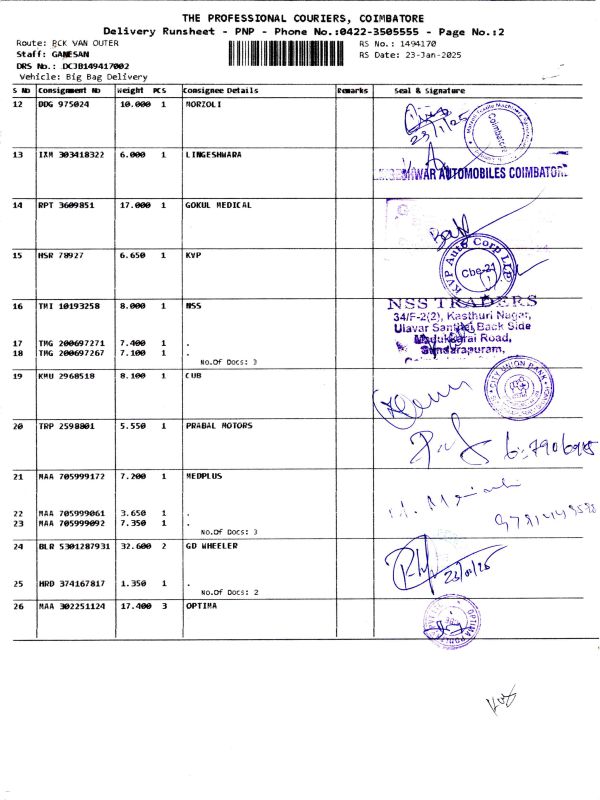 THE PROFESSIONAL COURIERS, COIMBATORE
Delivery Runsheet - PNP - Phone No.:0422-3505555 - Page No.:2
Route: PCK VAN OUTER
RS No.: 1494170
Staff: GANESAN
RS Date: 23-Jan-2025
DRS No.: DCJB149417002
Vehicle: Big Bag Delivery
S No Consignment No Weight PCS Consignee Details Remarks Seal & Signature
12 DDG 975024 10.000 1 MORZOLI
23/1/25
Coimbatore
13 IXM 303418322 6.000 1 LINGESHWARA
WAR AUTOMOBILES COIMBATORE
14 RPT 3609851 17.000 1 GOKUL MEDICAL
15 HSR 78927 6.650 1 KVP
KVP Auto Corp LLP.
Cbe-21
16 TMI 10193258 8.000 1 NSS
NSS TRADERS
34/F-2(2), Kasthuri Nagar,
Ulavar Santhai Back Side
Madukkarai Road,
Sundarapuram,
17 TMG 200697271 7.400 1 .
18 TMG 200697267 7.100 1 .
No.Of Docs: 3
19 KMU 2968518 8.100 1 CUB
CITY UNION BANK
20 TRP 2598801 5.550 1 PRABAL MOTORS
21 MAA 705999172 7.200 1 MEDPLUS
22 MAA 705999061 3.650 1 .
23 MAA 705999092 7.350 1 .
No.Of Docs: 3
24 BLR 5301287931 32.600 2 GD WHEELER
25 HRD 374167817 1.350 1 .
No.Of Docs: 2
26 MAA 302251124 17.400 3 OPTIMA
OPTIMA